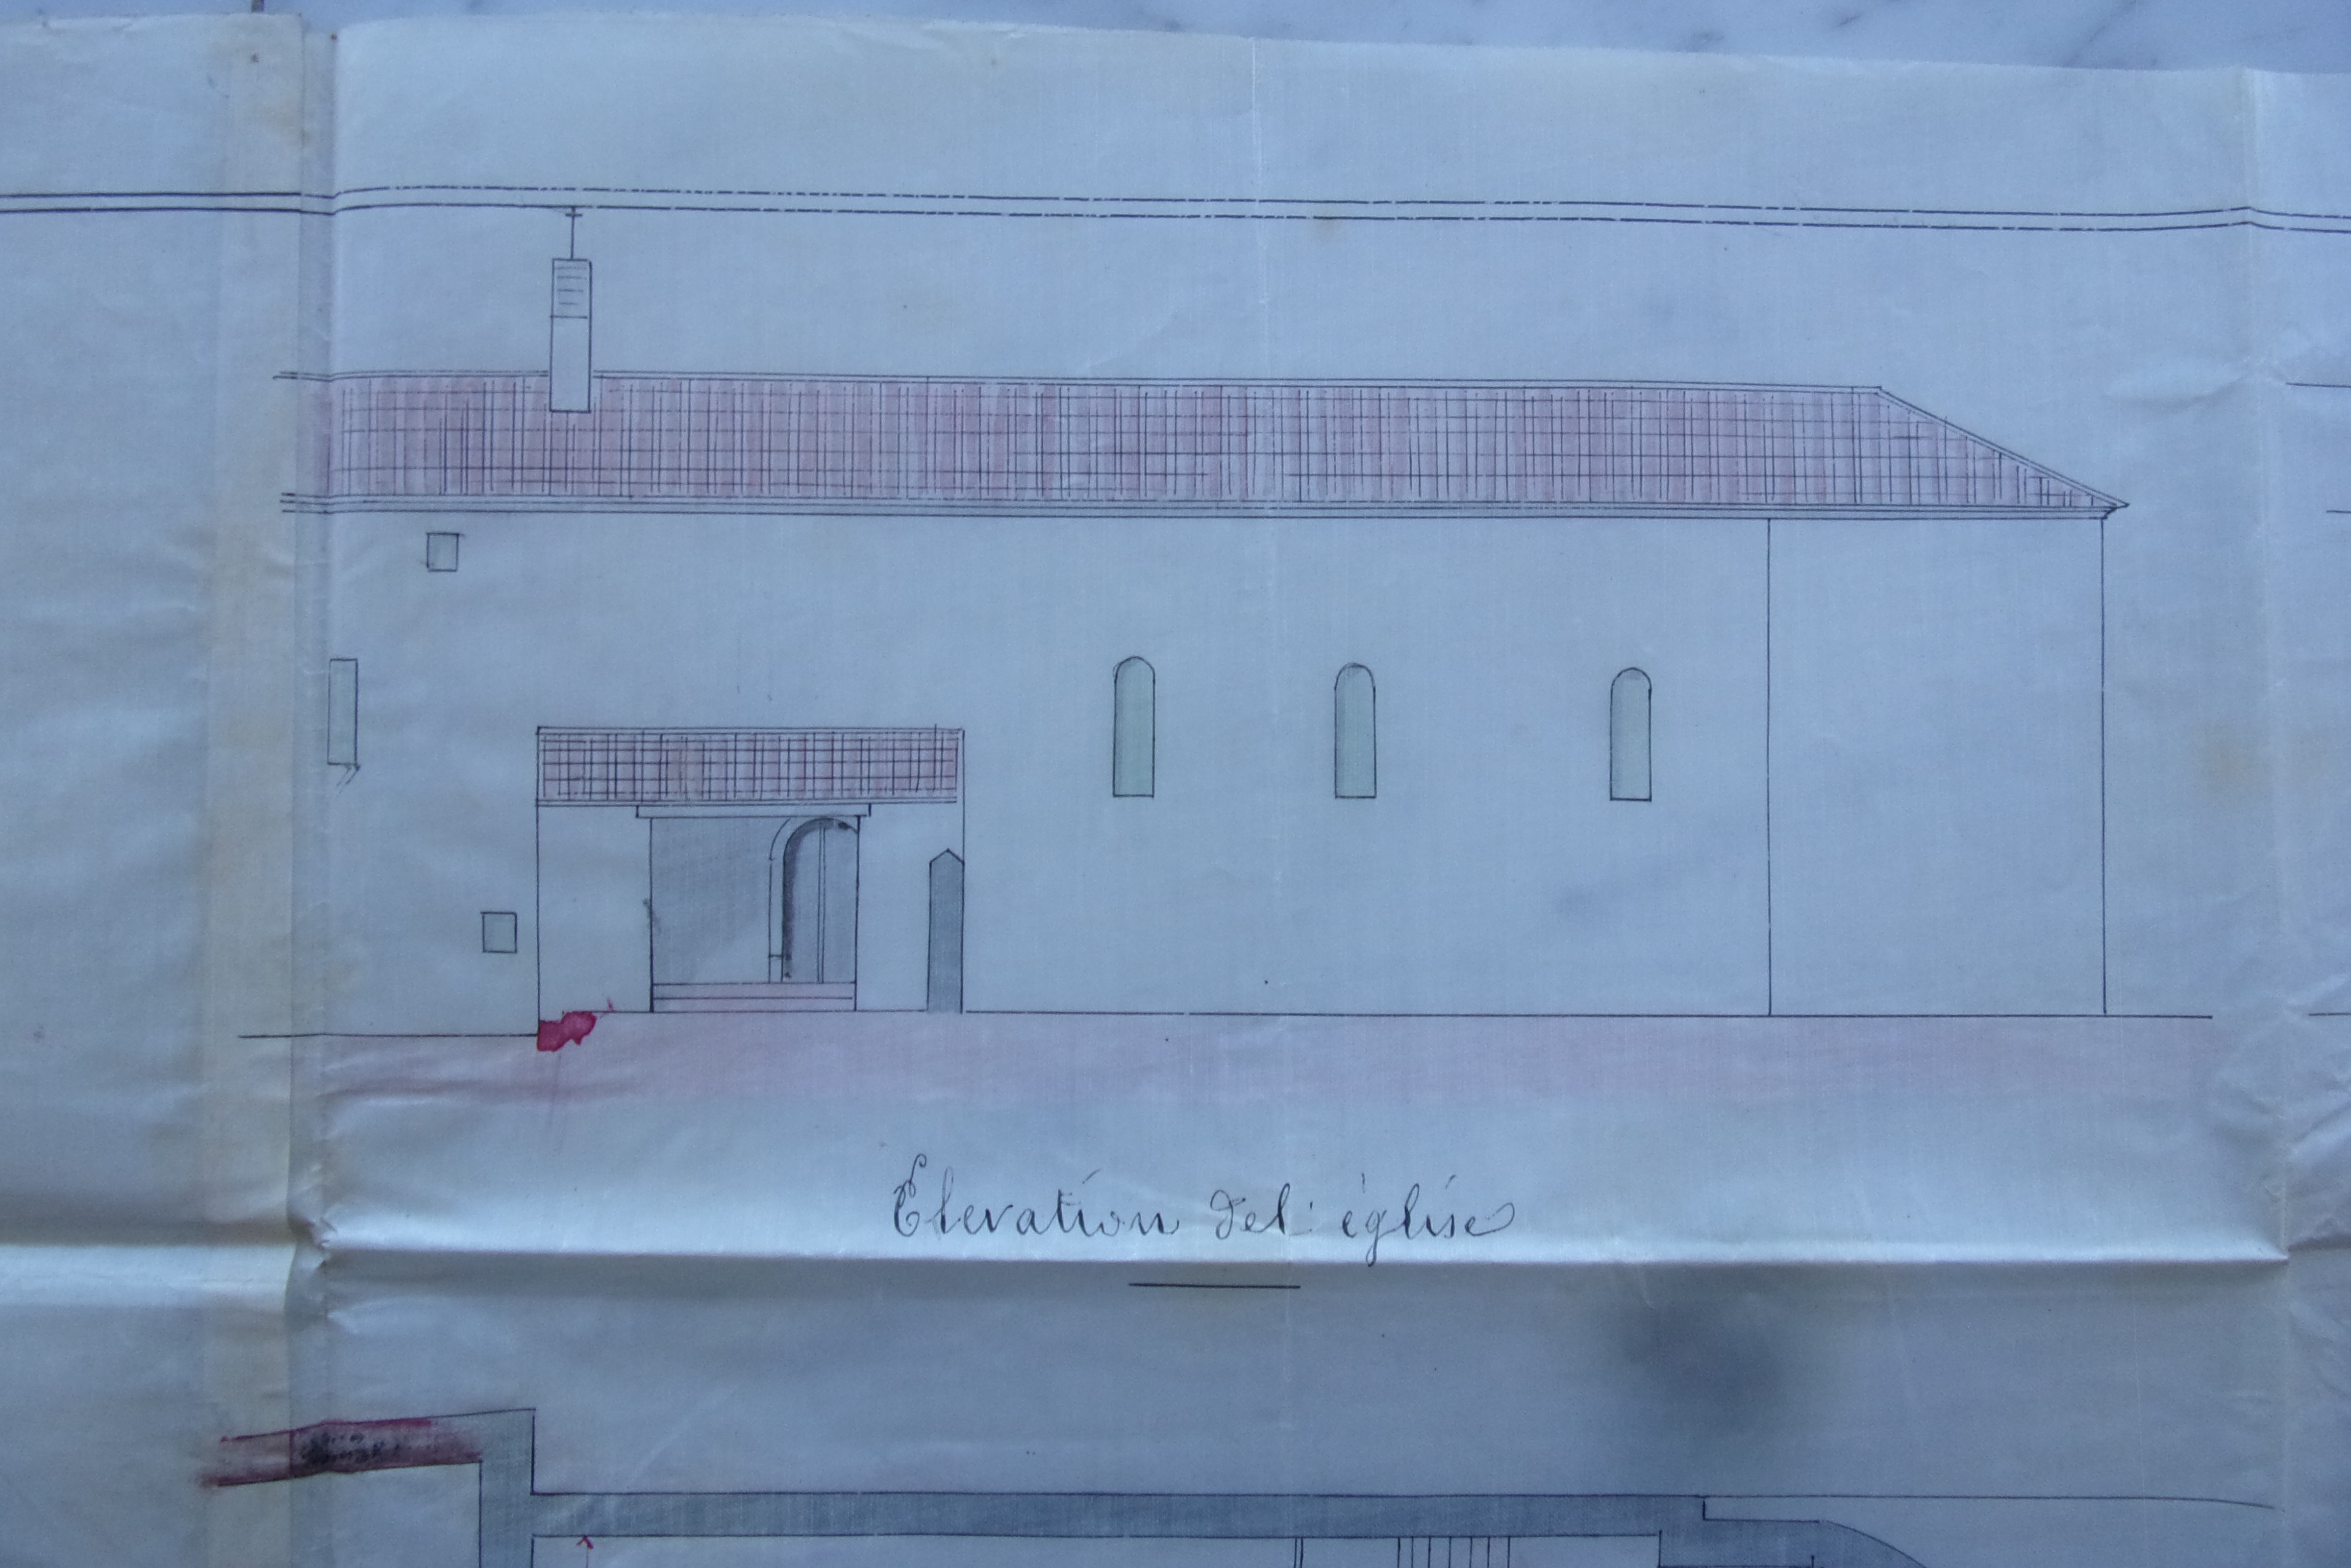 Élévation del' église